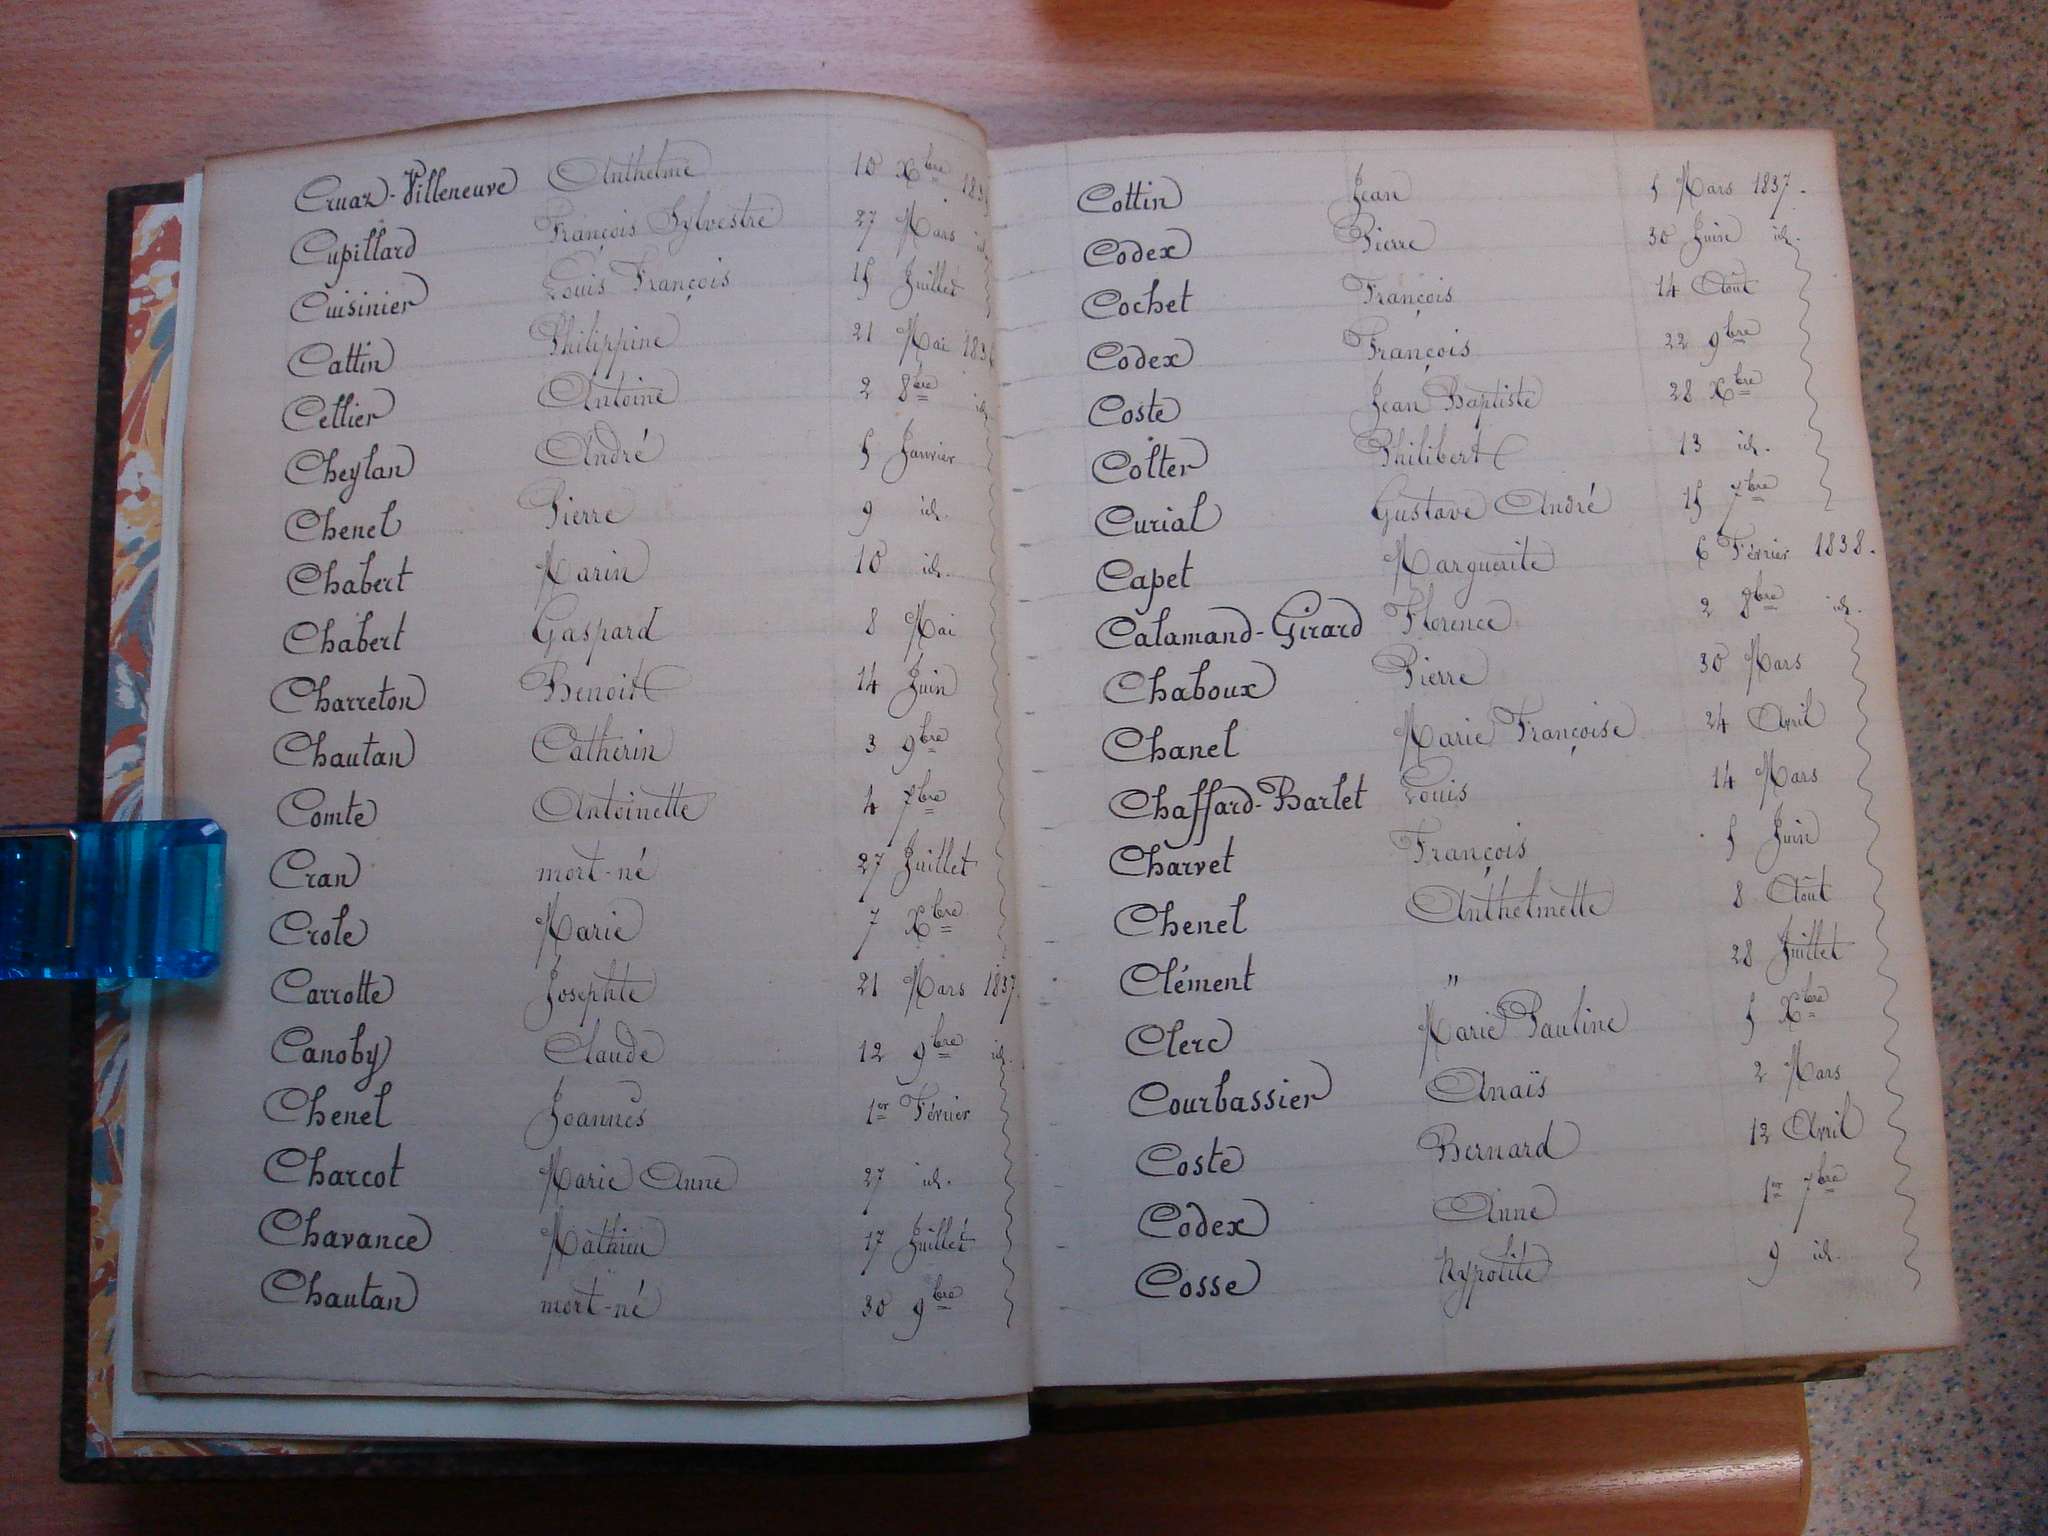 Cruaz-Villeneuve Anthelme 10 Xbre
Cupillard François Sylvestre 27 Mars id.
Cuisinier Louis François 15 Juillet
Cattin Philippine 21 Mai 1836
Cellier Antoine 2 8bre id.
Cheylan André 5 Janvier
Chenel Pierre 9 id.
Chabert Marin 10 id.
Chabert Gaspard 8 Mai
Charreton Benoit 14 Juin
Chautan Catherin 3 9bre
Comte Antoinette 4 7bre
Cran mort-né 27 Juillet
Crole Marie 7 Xbre
Carrotte Josephte 21 Mars 1837.
Canoby Claude 12 9bre id.
Chenel Joannès 1er Février
Charcot Marie Anne 27 id.
Chavance Mathieu 17 Juillet
Chautan mort-né 30 9bre
Cottin Jean 5 Mars 1837.
Codex Pierre 30 Juin id.
Cochet François 14 Août
Codex François 22 9bre
Coste Jean Baptiste 28 Xbre
Colter Philibert 13 id.
Curial Gustave André 15 7bre
Capet Marguerite 6 Février 1838.
Calamand-Girard Florence 2 8bre id.
Chaboux Pierre 30 Mars
Chanel Marie Françoise 24 Avril
Chaffard-Barlet Louis 14 Mars
Charvet François 5 Juin
Chenel Anthelmette 8 Août
Clément " 28 Juillet
Clerc Marie Pauline 5 Xbre
Courbassier Anaïs 2 Mars
Coste Bernard 12 Avril
Codex Anne 1er 7bre
Cosse Hypolite 9 id.